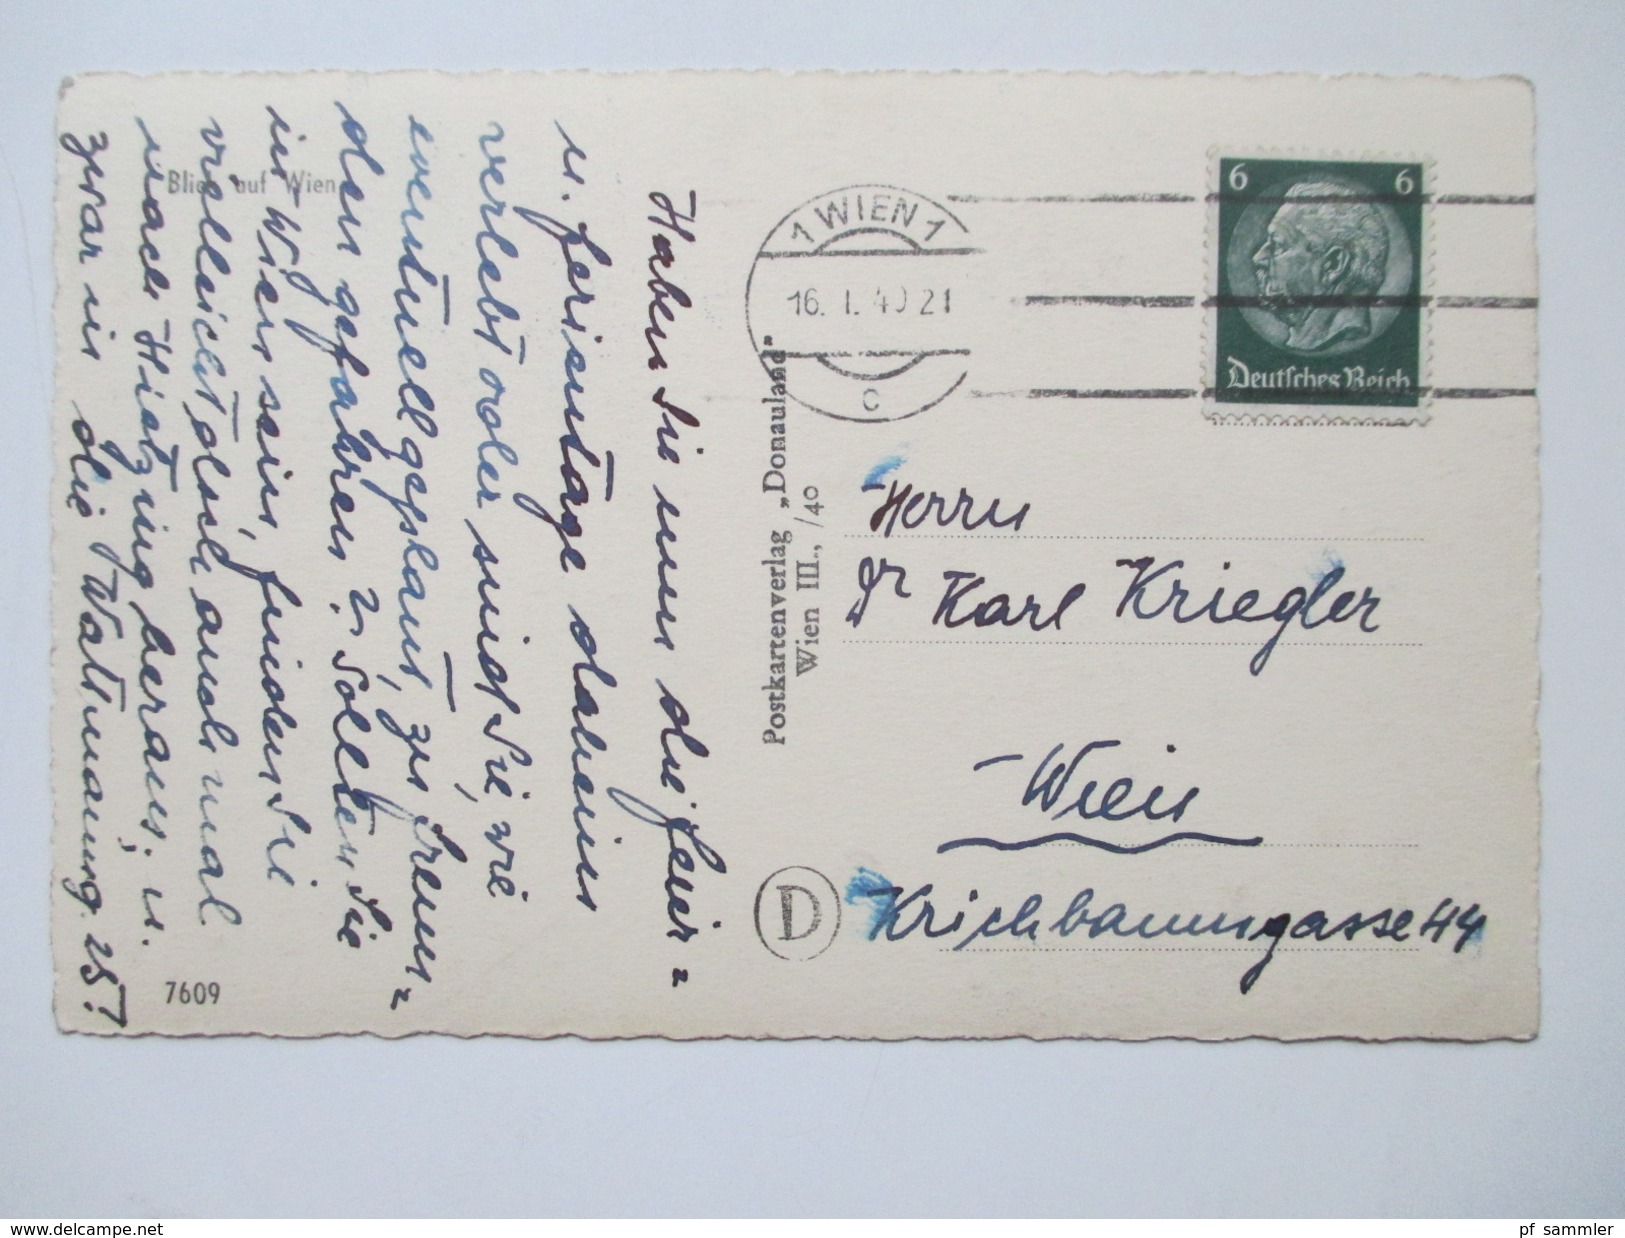 Blick auf Wien
Haben Sie nun die Feier=
u. Ferientage daheim
verlebt oder sind Sie, wie
eventuell geplant, zu Freun=
den gefahren? Sollten Sie
in Wien sein, finden Sie
vielleicht doch auch mal
nach Hietzing heraus; u.
zwar in die Wattmanng. 25?
7609
Postkartenverlag „Donauland“
Wien III., /40
D
1 WIEN 1
16. I. 40 21
c
6 6
Deutsches Reich
Herrn
Dr Karl Kriegler
Wien
Krichbaumgasse 44
www.delcampe.net
pf_sammler